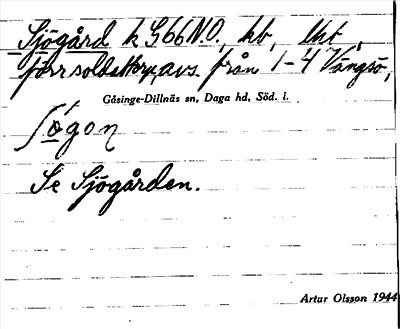 Sjögård k G66 N.O., hb, lht,
förr soldattorp avs. från 1-4 Vängsö,
Gåsinge-Dillnäs sn, Daga hd, Söd. l.
Se Sjögården.
Artur Olsson 1944